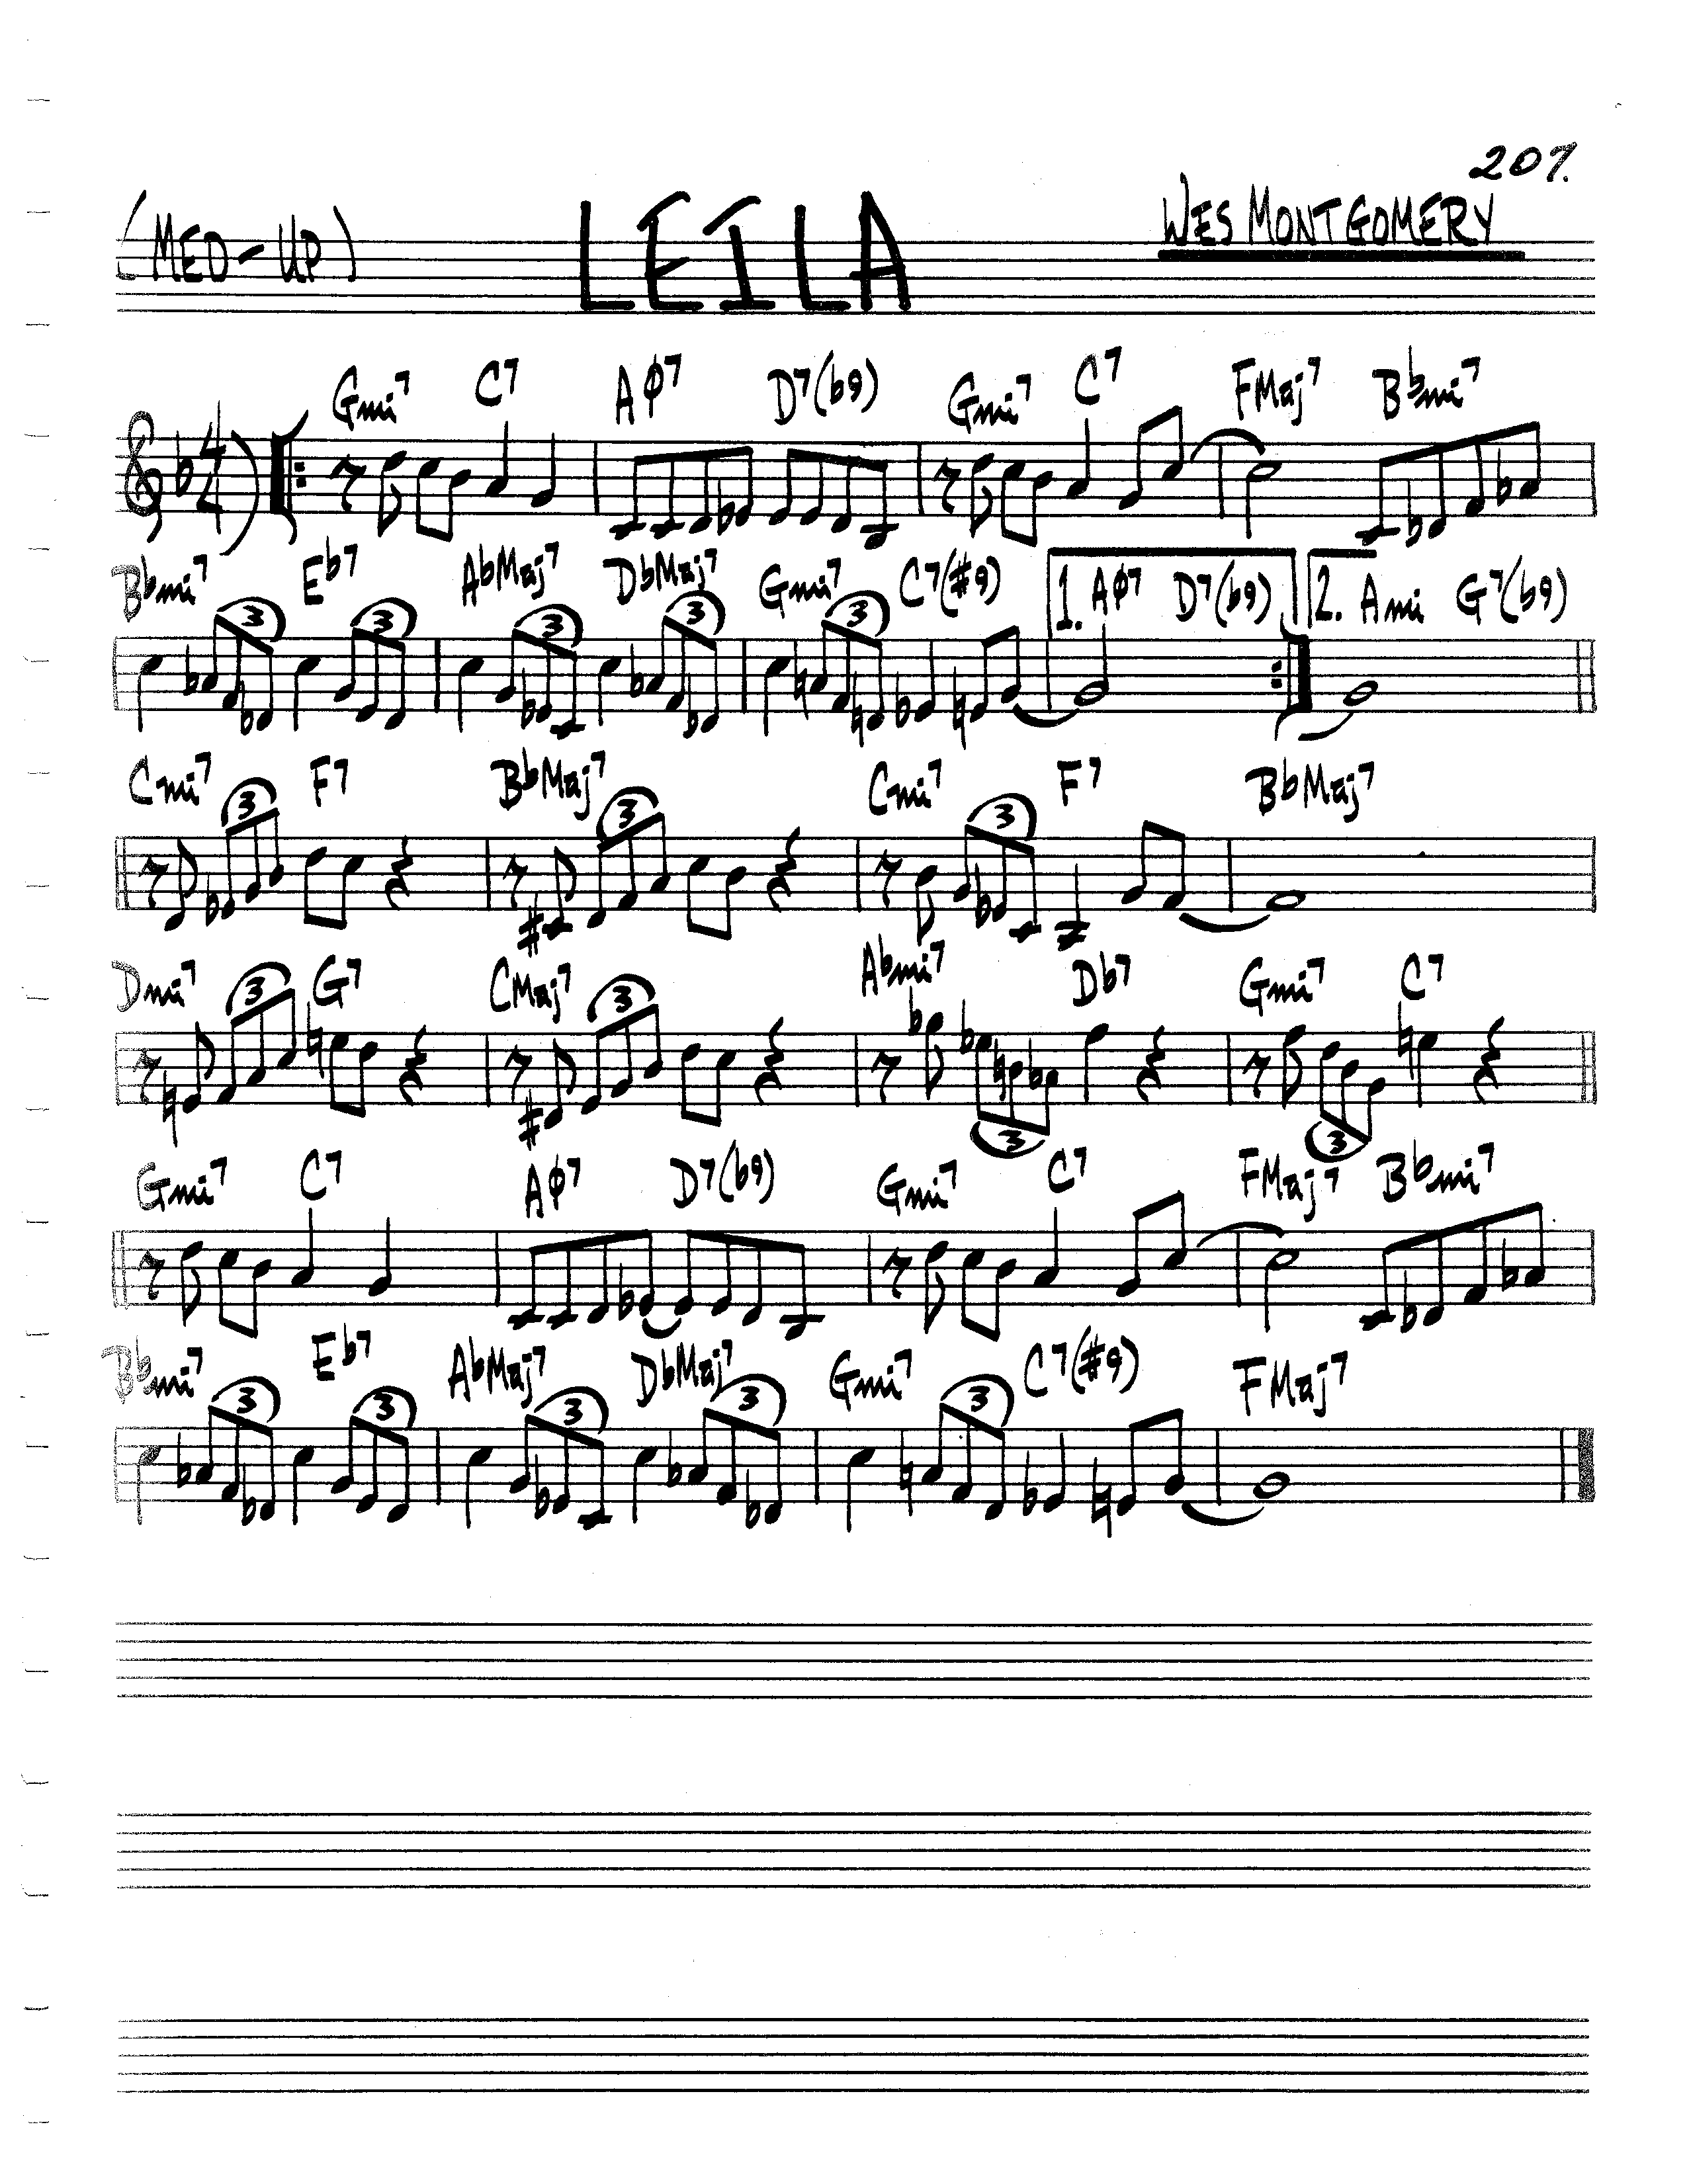 207.
(MED-UP) LEILA WES MONTGOMERY
Gmi7 C7 Aø7 D7(b9) Gmi7 C7 FMaj7 Bbmi7
4
4
Bbmi7 Eb7 AbMaj7 DbMaj7 Gmi7 C7(#9) 1. Aø7 D7(b9) 2. Ami G7(b9)
3 3 3 3 3
Cmi7 F7 BbMaj7 Cmi7 F7 BbMaj7
3 3 3
Dmi7 G7 CMaj7 Abmi7 Db7 Gmi7 C7
3 3 3 3
Gmi7 C7 Aø7 D7(b9) Gmi7 C7 FMaj7 Bbmi7
Bbmi7 Eb7 AbMaj7 DbMaj7 Gmi7 C7(#9) FMaj7
3 3 3 3 3